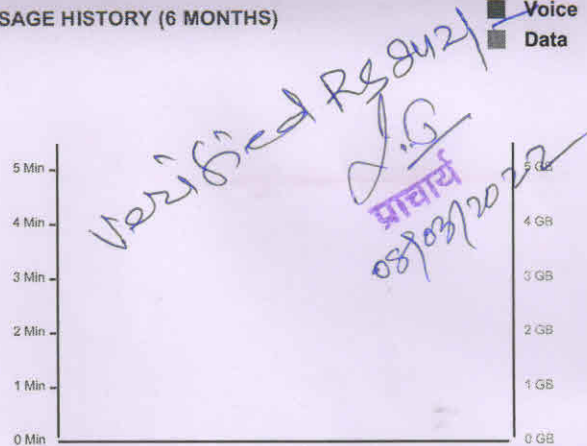 SAGE HISTORY (6 MONTHS)
Voice
Data
Verified Rs 842/-
प्राचार्य
08/03/2022
5 Min
4 Min
3 Min
2 Min
1 Min
0 Min
5 GB
4 GB
3 GB
2 GB
1 GB
0 GB